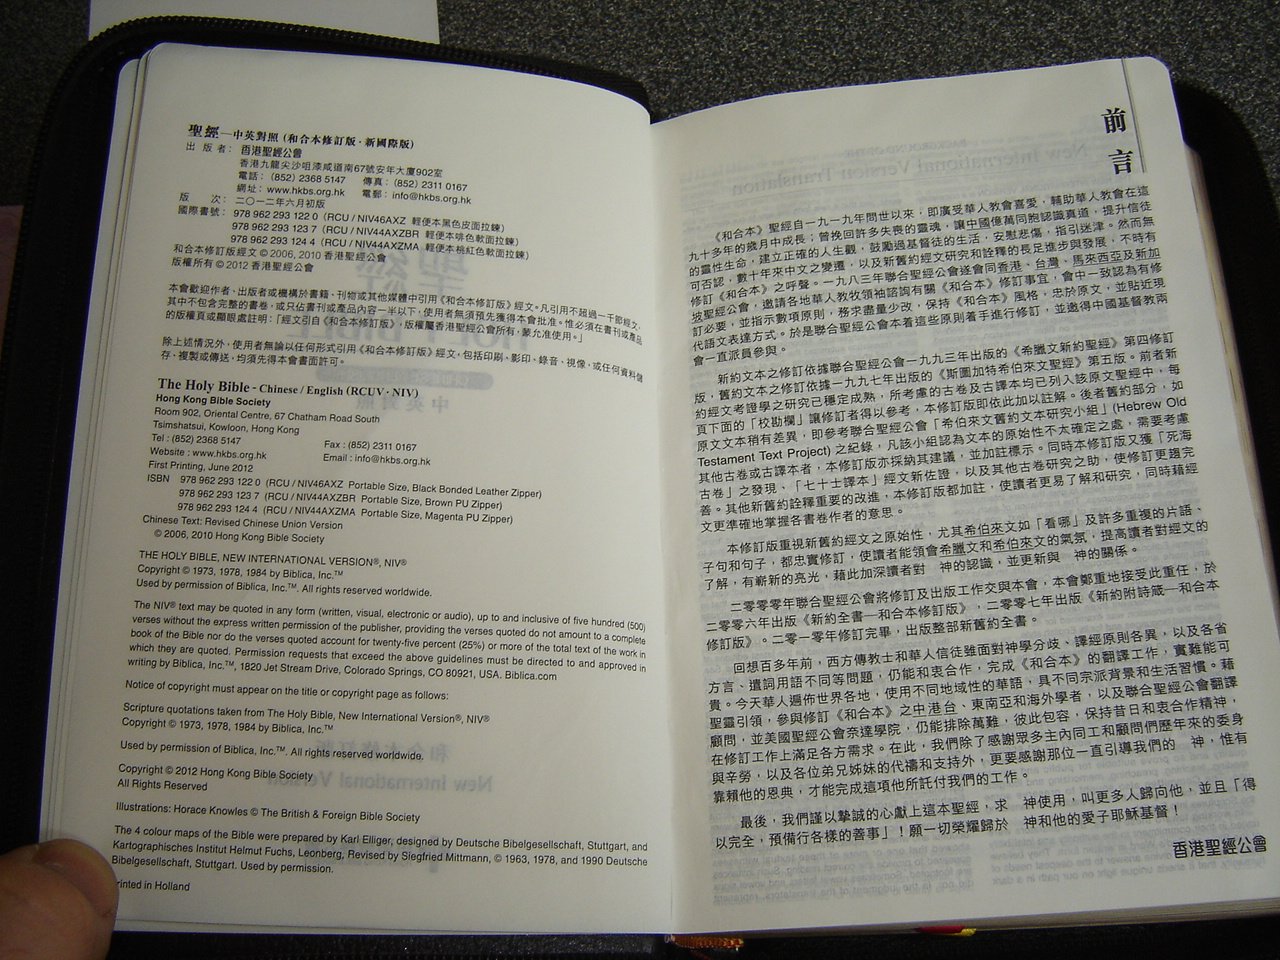 聖經－中英對照 (和合本修訂版‧新國際版)
出 版 者： 香港聖經公會
香港九龍尖沙咀漆咸道南67號安年大廈902室
電話：(852) 2368 5147 傳真：(852) 2311 0167
網址：www.hkbs.org.hk 電郵：info@hkbs.org.hk
版 次： 二○一二年六月初版
國際書號： 978 962 293 122 0 (RCU / NIV46AXZ 輕便本黑色皮面拉鍊)
978 962 293 123 7 (RCU / NIV44AXZBR 輕便本啡色軟面拉鍊)
978 962 293 124 4 (RCU / NIV44AXZMA 輕便本桃紅色軟面拉鍊)
和合本修訂版經文 © 2006, 2010 香港聖經公會
版權所有 © 2012 香港聖經公會
本會歡迎作者、出版者或機構於書籍、刊物或其他媒體中引用《和合本修訂版》經文。凡引用不超過一千節經文，
其中不包含完整的書卷，或只佔書刊或產品內容一半以下，使用者無須預先獲得本會批准。惟必須在書刊或產品
的版權頁或顯眼處註明：「經文引自《和合本修訂版》，版權屬香港聖經公會所有，蒙允准使用。」
除上述情況外，使用者無論以任何形式引用《和合本修訂版》經文，包括印刷、影印、錄音、視像，或任何資料儲
存、複製或傳送，均須先得本會書面許可。
The Holy Bible - Chinese / English (RCUV · NIV)
Hong Kong Bible Society
Room 902, Oriental Centre, 67 Chatham Road South
Tsimshatsui, Kowloon, Hong Kong
Tel : (852) 2368 5147 Fax : (852) 2311 0167
Website : www.hkbs.org.hk Email : info@hkbs.org.hk
First Printing, June 2012
ISBN 978 962 293 122 0 (RCU / NIV46AXZ Portable Size, Black Bonded Leather Zipper)
978 962 293 123 7 (RCU / NIV44AXZBR Portable Size, Brown PU Zipper)
978 962 293 124 4 (RCU / NIV44AXZMA Portable Size, Magenta PU Zipper)
Chinese Text: Revised Chinese Union Version
© 2006, 2010 Hong Kong Bible Society
THE HOLY BIBLE, NEW INTERNATIONAL VERSION®, NIV®
Copyright © 1973, 1978, 1984 by Biblica, Inc.™
Used by permission of Biblica, Inc.™. All rights reserved worldwide.
The NIV® text may be quoted in any form (written, visual, electronic or audio), up to and inclusive of five hundred (500)
verses without the express written permission of the publisher, providing the verses quoted do not amount to a complete
book of the Bible nor do the verses quoted account for twenty-five percent (25%) or more of the total text of the work in
which they are quoted. Permission requests that exceed the above guidelines must be directed to and approved in
writing by Biblica, Inc.™, 1820 Jet Stream Drive, Colorado Springs, CO 80921, USA. Biblica.com
Notice of copyright must appear on the title or copyright page as follows:
Scripture quotations taken from The Holy Bible, New International Version®, NIV®
Copyright © 1973, 1978, 1984 by Biblica, Inc.™
Used by permission of Biblica, Inc.™. All rights reserved worldwide.
Copyright © 2012 Hong Kong Bible Society
All Rights Reserved
Illustrations: Horace Knowles © The British & Foreign Bible Society
The 4 colour maps of the Bible were prepared by Karl Elliger, designed by Deutsche Bibelgesellschaft, Stuttgart, and
Kartographisches Institut Helmut Fuchs, Leonberg, Revised by Siegfried Mittmann, © 1963, 1978, and 1990 Deutsche
Bibelgesellschaft, Stuttgart. Used by permission.
Printed in Holland
前言
《和合本》聖經自一九一九年問世以來，即廣受華人教會喜愛，輔助華人教會在這
九十多年的歲月中成長；曾挽回許多失喪的靈魂，讓中國億萬同胞認識真道，提升信徒
的靈性生命，建立正確的人生觀，鼓勵過基督徒的生活，安慰悲傷，指引迷津。然而無
可否認，數十年來中文之變遷，以及新舊約經文研究和詮釋的長足進步與發展，不時有
修訂《和合本》之呼聲。一九八三年聯合聖經公會遂會同香港、台灣、馬來西亞及新加
坡聖經公會，邀請各地華人教牧領袖諮詢有關《和合本》修訂事宜，會中一致認為有修
訂必要，並指示數項原則，務求盡量少改，保持《和合本》風格，忠於原文，並貼近現
代語文表達方式。於是聯合聖經公會本着這些原則着手進行修訂，並邀得中國基督教兩
會一直派員參與。
新約文本之修訂依據聯合聖經公會一九九三年出版的《希臘文新約聖經》第四修訂
版，舊約文本之修訂依據一九九七年出版的《斯圖加特希伯來文聖經》第五版。前者新
約經文考證學之研究已穩定成熟，所考慮的古卷及古譯本均已列入該原文聖經中，每
頁下面的「校勘欄」讓修訂者得以參考，本修訂版即依此加以註解。後者舊約部分，如
原文文本稍有差異，即參考聯合聖經公會「希伯來文舊約文本研究小組」(Hebrew Old
Testament Text Project) 之紀錄，凡該小組認為文本的原始性不太確定之處，需要考慮
其他古卷或古譯本者，本修訂版亦採納其建議，並加註標示。同時本修訂版又獲「死海
古卷」之發現、「七十士譯本」經文新佐證，以及其他古卷研究之助，使修訂更趨完
善。其他新舊約詮釋重要的改進，本修訂版都加註，使讀者更易了解和研究，同時藉經
文更準確地掌握各書卷作者的意思。
本修訂版重視新舊約經文之原始性，尤其希伯來文如「看哪」及許多重複的片語、
子句和句子，都忠實修訂，使讀者能領會希臘文和希伯來文的氣氛，提高讀者對經文的
了解，有嶄新的亮光，藉此加深讀者對　神的認識，並更新與　神的關係。
二零零零年聯合聖經公會將修訂及出版工作交與本會，本會鄭重地接受此重任，於
二零零六年出版《新約全書—和合本修訂版》，二零零七年出版《新約附詩箴—和合本
修訂版》。二零一零年修訂完畢，出版整部新舊約全書。
回想百多年前，西方傳教士和華人信徒雖面對神學分歧、譯經原則各異，以及各省
方言、遣詞用語不同等問題，仍能和衷合作，完成《和合本》的翻譯工作，實難能可
貴。今天華人遍佈世界各地，使用不同地域性的華語，具不同宗派背景和生活習慣。藉
聖靈引領，參與修訂《和合本》之中港台、東南亞和海外學者，以及聯合聖經公會翻譯
顧問，並美國聖經公會奈達學院，仍能排除萬難，彼此包容，保持昔日和衷合作精神，
在修訂工作上滿足各方需求。在此，我們除了感謝眾多主內同工和顧問們歷年來的委身
與辛勞，以及各位弟兄姊妹的代禱和支持外，更要感謝那位一直引導我們的　神，惟有
靠賴他的恩典，才能完成這項他所託付我們的工作。
最後，我們謹以摯誠的心獻上這本聖經，求　神使用，叫更多人歸向他，並且「得
以完全，預備行各樣的善事」！願一切榮耀歸於　神和他的愛子耶穌基督！
香港聖經公會